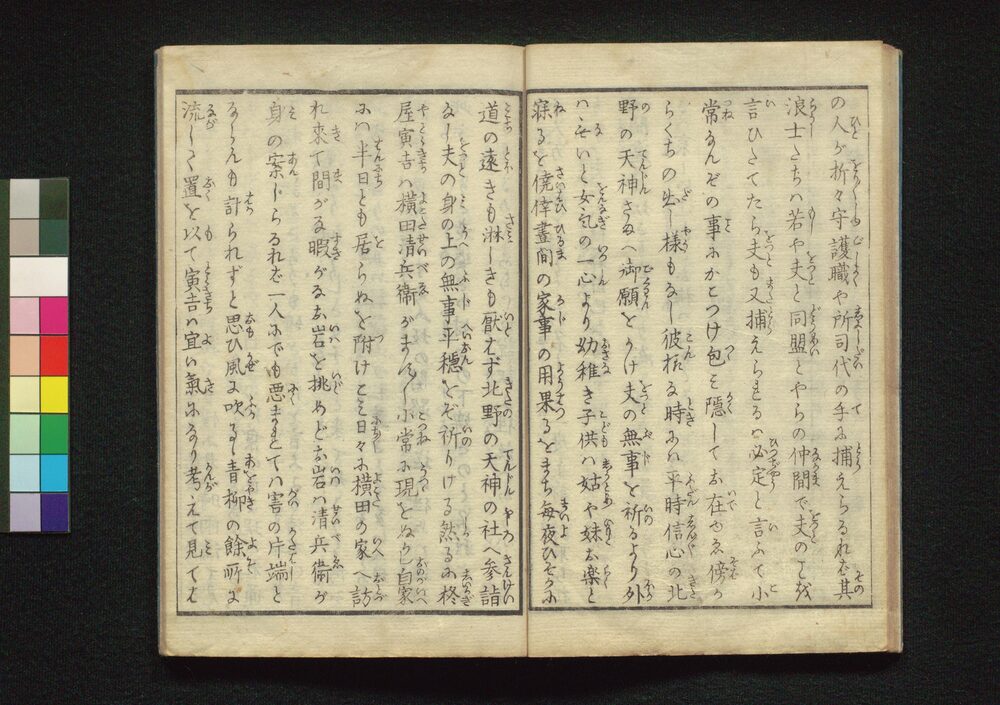 の人が折々守護職や所司代の手に捕えらるれば其
浪士たちは若や夫と同盟とやらの仲間で夫のことを
言ひたてたら夫も又捕えらるるは必定と言ふて小
常なんぞの事にかこつけ包み隠してお在やゑ傍か
らくちの出し様もなし彼拠る時には平時信心の北
野の天神さまへ御願をかけ夫の無事を祈るより外
はないと女気の一心より幼稚き子供は姑や妹お楽と
寐るを僥倖昼間の家事の用果るをまち毎夜ひそかに
道の遠きも淋しきも厭はず北野の天神の社へ参詣
なし夫の身の上の無事平穏をぞ祈りける然るに柊
屋寅吉は横田清兵衛がまんし小常に現をぬかし自家
には半日とも居らぬを附けこみ日々に横田の家へ訪
れ来て間がな暇がなお岩を挑めどお岩は清兵衛が
身の案じらるれば一人にても悪まれては害の片端と
ならんも計られずと思ひ風に吹るゝ青柳の餘所に
流して置を以て寅吉は宜い氣になり考えて見ては